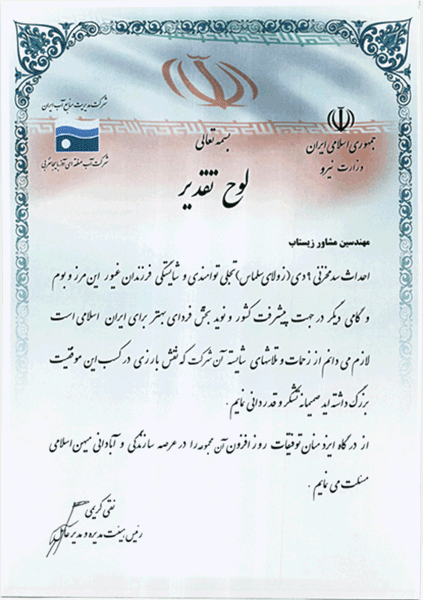 شرکت مدیریت منابع آب ایران
شرکت آب منطقه ای آذربایجان غربی
جمهوری اسلامی ایران
وزارت نیرو
بسمه تعالی
لوح تقدیر
مهندسین مشاور زیستاب
احداث سد مخزنی ۹ دی (زولای سلماس) تجلی توانمندی و شایستگی فرزندان غیور این مرز و بوم
و گامی دیگر در جهت پیشرفت کشور و نوید بخش فردای بهتر برای ایران اسلامی است
لازم می دانم از زحمات و تلاشهای شایسته آن شرکت که نقش بارزی در کسب این موفقیت
بزرگ داشته اید صمیمانه تشکر و قدردانی نمایم .
از درگاه ایزد منان توفیقات روز افزون آن مجموعه را در عرصه سازندگی و آبادانی میهن اسلامی
مسئلت می نمایم .
نقی کریمی
رئیس هیئت مدیره و مدیر عامل